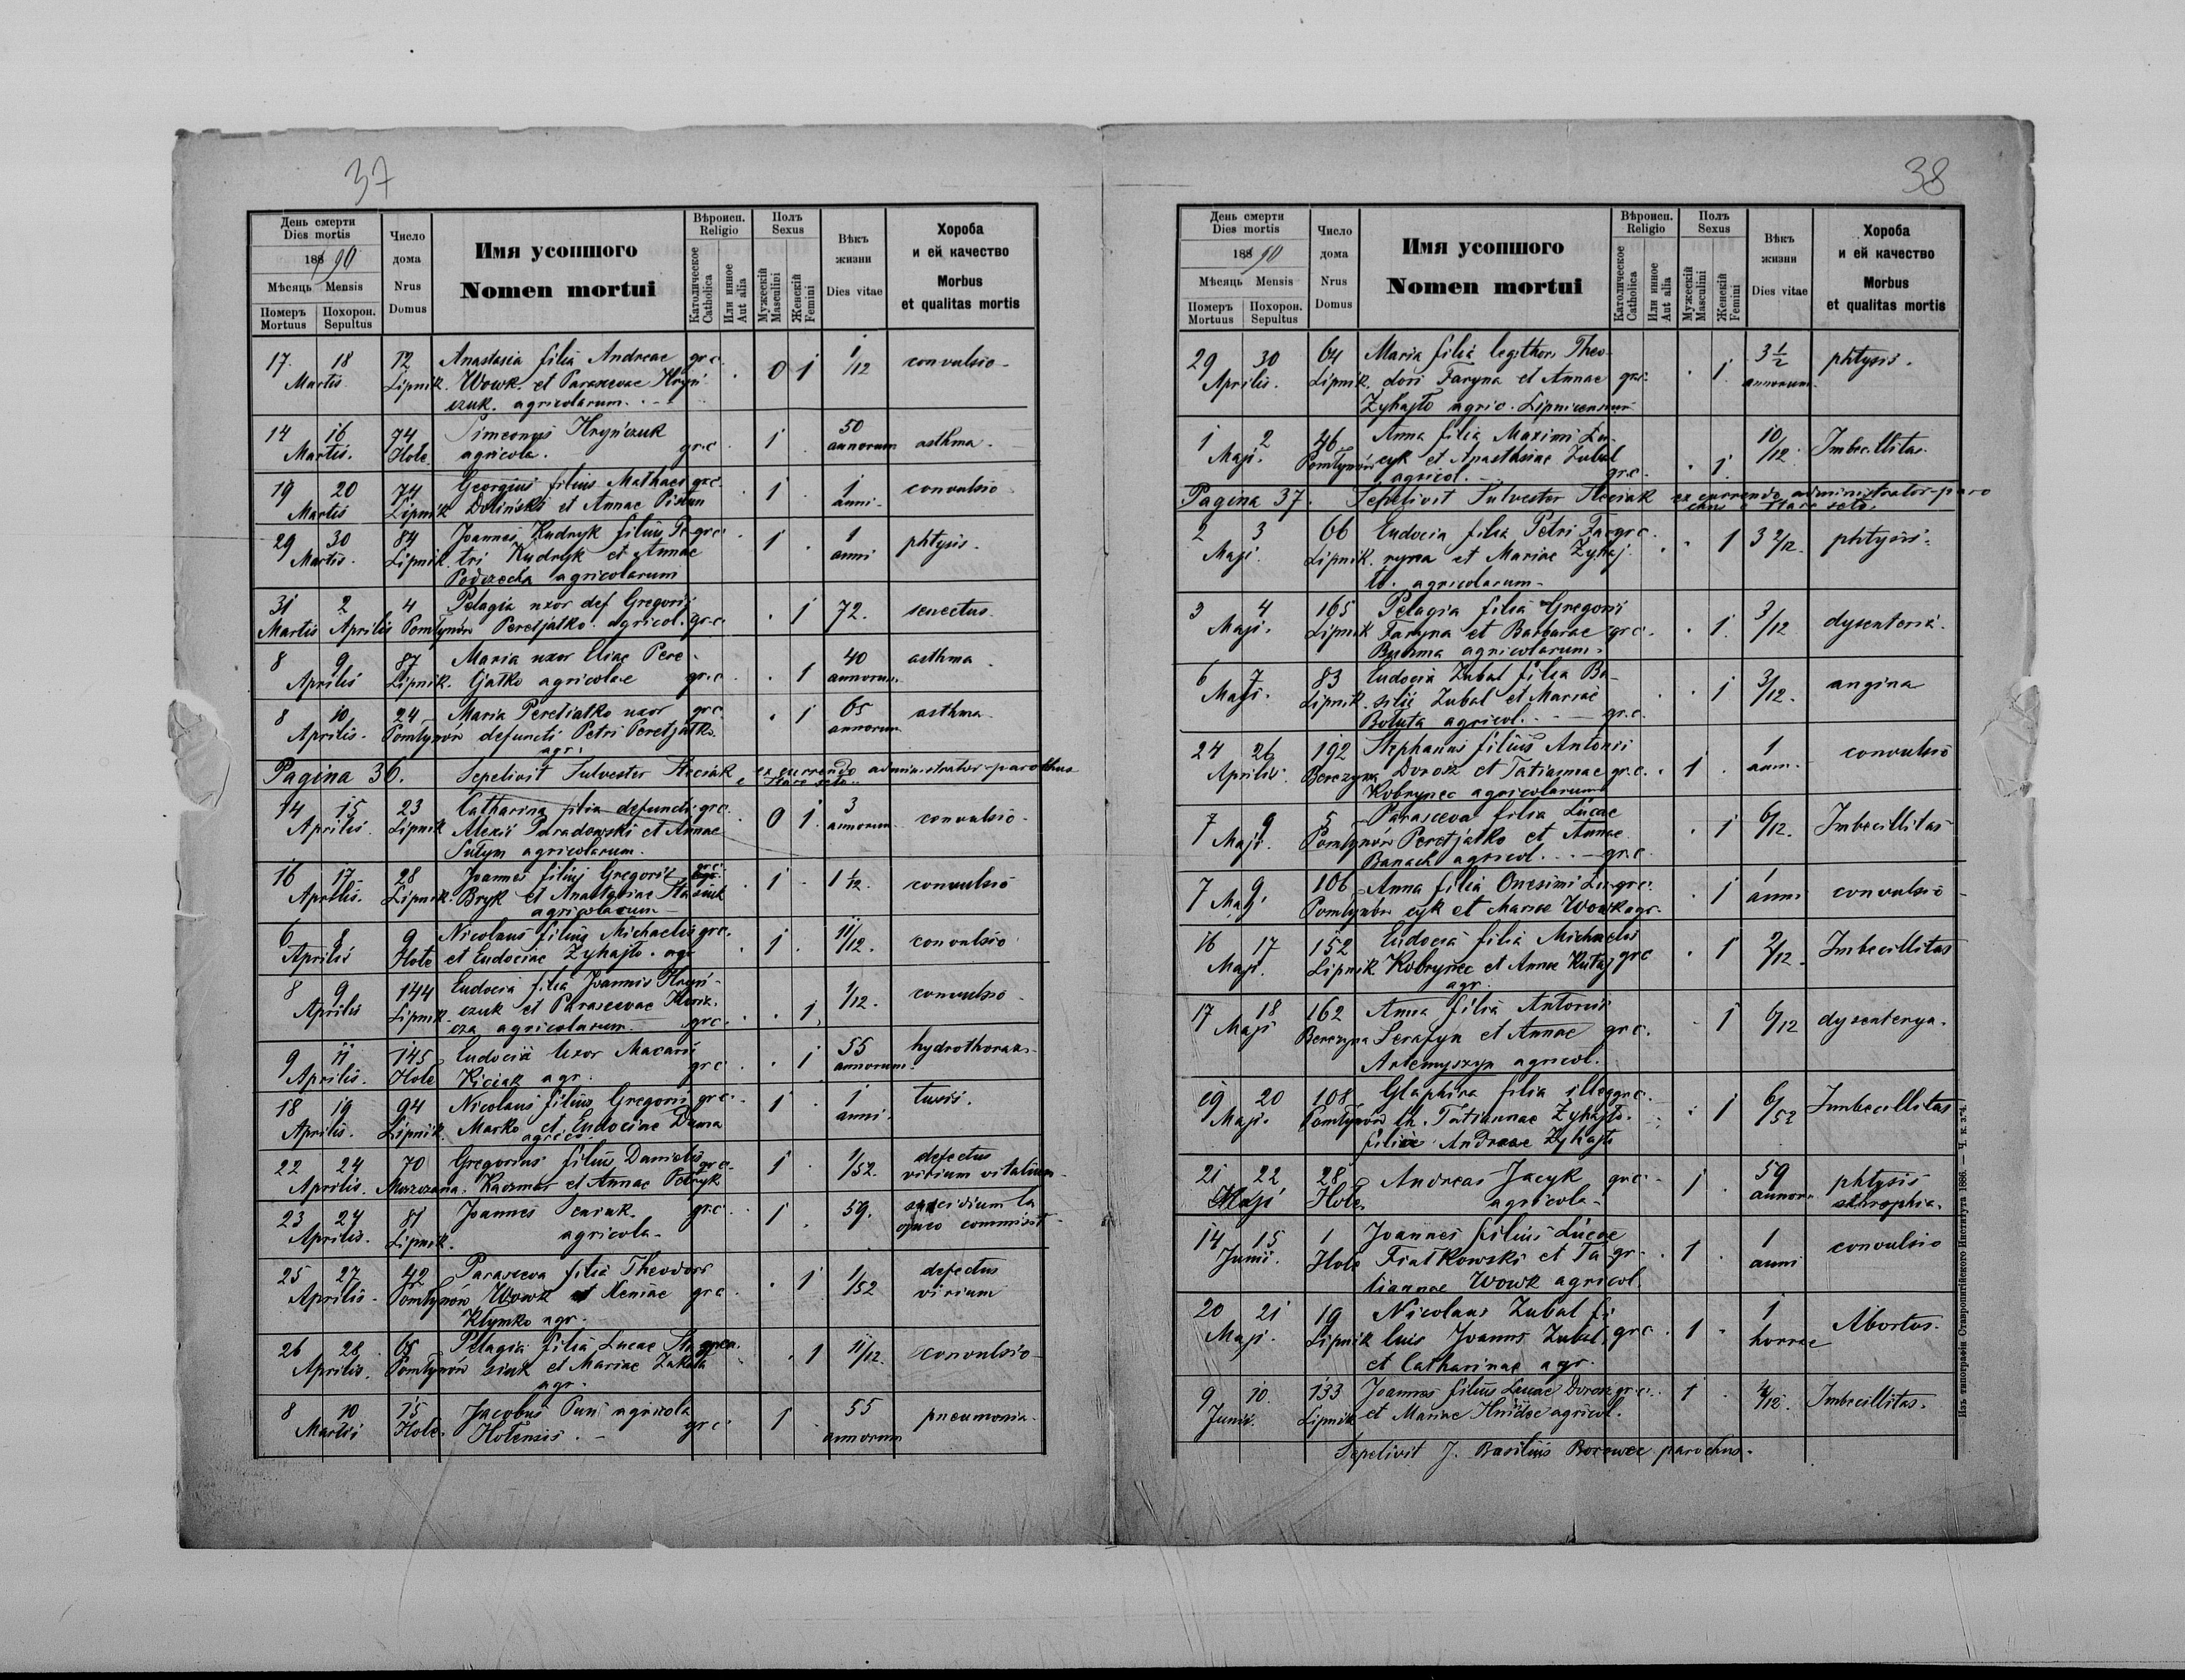 37
День смерти
Dies mortis
188 90
Мѣсяць Mensis
Померъ Mortuus
Похорон. Sepultus
Число дома
Nrus Domus
Имя усопшого
Nomen mortui
Вѣроисп. Religio
Католическое Catholica
Или инное Aut alia
Полъ Sexus
Мужескій Masculini
Женскій Femini
Вѣкъ жизни
Dies vitae
Хороба и ей качество
Morbus et qualitas mortis
17 18 12 Anastasia filia Andreae gr.c. 0 1 1/12 convulsio
Martis Lipnik. Wowk et Parascevae Hryń
czuk. agricolarum.
14 16 74 Simeonys Hryńczuk 1 50 asthma.
Martis. Hole agricola. gr.c. annorum
19 20 74 Georgius filius Mathaei gr.c. 1 1 convulsio
Martis Lipnik Doliński et Annae Pistun anni
29 30 84 Joannes Kudryk filius Pe gr.c. 1 1 phtysis.
Martis. Lipnik tri Kudryk et Annae anni
agricolarum
31 2 4 Pelagia uxor def Gregorii 1 72. senectus.
Martis Aprilis Pomłynów Peretjatko. agricol. gr.c.
8 9 87 Maria uxor Eliae Pere- 40 asthma.
Aprilis Lipnik. tjatko agricolae gr.c. 1 annorum.
8 10 24 Maria Peretiatko uxor gr.c. 1 65 asthma
Aprilis. Pomłynów defuncti Petri Peretjatko annorum
agr.
Pagina 36. Sepelivit Sulvester Steciak ex currendo administrator-parochus
e Stare seło
14 15 23 Catharina filia defuncti gr.c. 0 1 3 convulsio
Aprilis. Lipnik Alexii Paradowski et Annae annorum
Sutym agricolarum.
16 17 28 Joannes filius Gregorii gr.c. 1 1 1/12. convulsio
Aprilis. Lipnik. Bryk et Stasiuk
agricolarum
6 8 9 Nicolaus filius Michaelis gr.c. 1 11/12. convulsio
Aprilis Hole et Eudociae Zyhajło. agr
8 9 144 Eudocia filia Joannis Hryń- 1/12. convulsio
Aprilis Lipnik. czuk et Parascevae 1
agricolarum. gr.c.
9 11 145 Eudocia Uxor Macarii 1 55 hydrothorax
Aprilis. Hole Kiciak agr. gr.c. annorum.
18 19 94 Nicolaus filius Gregorii gr.c. 1 1 tussis.
Aprilis. Lipnik. Marko et Eudociae Duma anni.
agricol.
22 24 70 Gregorius filius Danielis gr.c. 1 1/52. defectus
Aprilis. Kaczmar et Annae Petryk virium vitalium
23 24 81 Joannes gr.c. 1 59. suicidium la
Aprilis. Lipnik. agricola- queo commisit
25 27 42 Parasceva filia Theodori 1 1/52 defectus
Aprilis. Pomłynów Wowk et Xeniae gr.c virium
Klymko agr.
26 28 68 Pelagia filia Lucae Sta gr.c. 1 11/12. convulsio
Aprilis. Pomłynów siuk et Mariae Zakała
agr.
8 10 15 Jacobus Puń agricola 1 55 pneumonia.
Martii Hole. Holensis. gr.c. annorum
38
День смерти
Dies mortis
188 90
Мѣсяць Mensis
Померъ Mortuus
Похорон. Sepultus
Число дома
Nrus Domus
Имя усопшого
Nomen mortui
Вѣроисп. Religio
Католическое Catholica
Или инное Aut alia
Полъ Sexus
Мужескій Masculini
Женскій Femini
Вѣкъ жизни
Dies vitae
Хороба и ей качество
Morbus et qualitas mortis
29 30 64 Maria filia legithori Theo- 1 3 1/2 phtysis.
Aprilis. Lipnik. dori Faryna et Annae gr.c. annorum
Zyhajło agric. Lipnicensium
1 2 46 Anna filia Maximi Lu- 10/12 Imbecillitas.
Maji. Pomłynów cyk et Anastasiae Zubal 1
agricol. gr.c.
Pagina 37. Sepelivit Sulvester Steciak ex currendo administrator-paro
chus e Stare seło.
2 3 66 Eudocia filia Petri Fa gr.c. 1 3 2/12. phtysis.
Maji. Lipnik. ryna et Mariae Zyhaj-
ło. agricolarum-
3 4 165 Pelagia filia Gregorii 1 3/12 dysenteria.
Maji. Lipnik Faryna et Barbarae gr.c.
agricolarum-
6 7 83 Eudocia Zubal filia Ba- 1 3/12. angina
Maji. Lipnik. silii Zubal et Mariae
Bołuta agricol. gr.c.
24 26 192 Stephanus filius Antonii 1 1 convulsio
Aprilis. Berezyna Dorosz et Tatiannae gr.c. ann.
Kobrynec agricolarum
7 9 5 Parasceva filia Lucae 1 6/12. Imbecillitas
Maji. Pomłynów Peretjatko et Annae
Banach agricol. gr.c
7 9 106 Anna filia Onesimi Lu- gr.c. 1 1 convulsio
Maji Pomłynów cyk et Mariae Wowk agr. anni
16 17 152 Eudocia filia Michaelis 1 2/12. Imbecillitas
Maji. Lipnik Kobrynec et Annae Kutaj gr.c
agr.
17 18 162 Anna filia Antonii 1 6/12 dysenterya.
Maji Berezyna Serafyn et Annae gr.c.
Artemyszyn agricol.
19 20 108 Glaphira filia illeg gr.c. 1 6/52 Imbecillitas
Maji. Pomłynów th. Tatiannae Zyhajło.
filiae Andreae Zyhajło
21 22 28 Andreas Jacyk gr.c. 1 59 phtysis
Maji Hole agricola- annor. athrophia.
14 15 1 Joannes filius Lucae 1 1 convulsio
Junii. Hole Fiałkowski et Ta gr. anni
tiannae Wowk agricol.
20 21 19 Nicolaus Zubal fi 1 1 Abortus.
Maji. Lipnik lius Joannis Zubal. gr.c horrae
et Catharinae agr.
9 10 133 Joannes filius Lucae Dorosz gr.c. 1 4/12. Imbecillitas.
Junii. Lipnik et Mariae Hnidec agricol.
Sepelivit J. Basilius Borowec parochus.
Изъ типографіи Ставропигійского Института 1886. — Ч. к. з. 4.